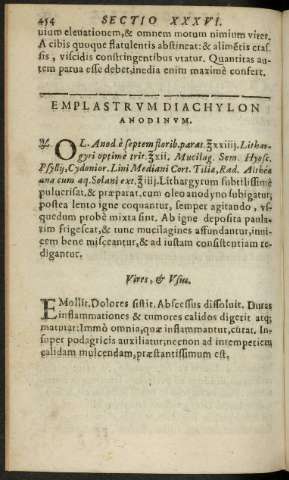 454 SECTIO XXXVI.
uium eleuationem, & omnem motum nimium vitet,
A cibis quoque flatulentis abstineat: & alimētis cras-
sis, viscidis constringentibus vtatur. Quantitas au-
tem parua esse debet, inedia enim maximè confert.
EMPLASTRVM DIACHYLON
ANODINVM.
℞. OL. Anod è septem florib. parat. ℥xxiiij. Lithar-
gyri optimè trit. ℥xii, Mucilag. Sem. Hyosc.
Psylly, Cydonior. Lini Mediani Cort. Tiliæ, Rad. Althea
ana cum aq. Solani ext. ℥iiij. Lithargyrum subtilissimè
puluerisat, & præparat. cum oleo anodyno subigatur,
postea lento igne coquantur, semper agitando, vs-
quedum probè mixta sint. Ab igne deposita paula-
tim frigescat, & tunc mucilagines affundantur, inui-
cem bene misceantur, & ad iustam consistentiam re-
digantur.
Vires, & Vsus.
EMollit. Dolores sistit. Abscessus dissoluit. Duras
inflammationes & tumores calidos digerit atq;
maturat: Immò omnia, quæ inflammantur, curat. In-
super podagricis auxiliatur, necnon ad intemperiem
calidam mulcendam, præstantissimum est,